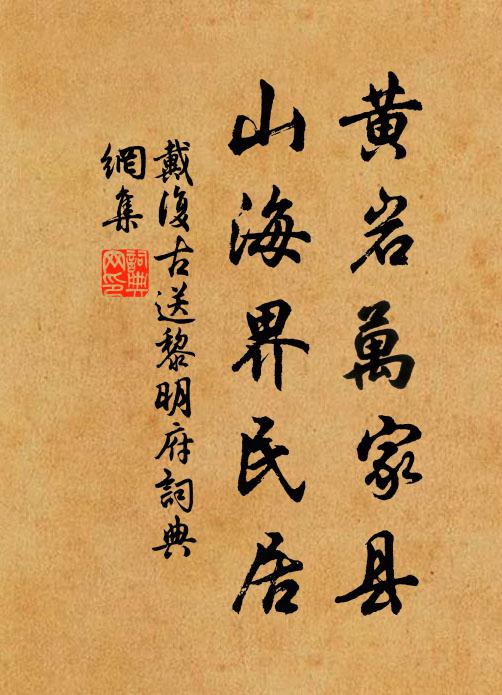 黄岩萬家县
山海界民居
戴復古送黎明府詞典
網集
詞典網印